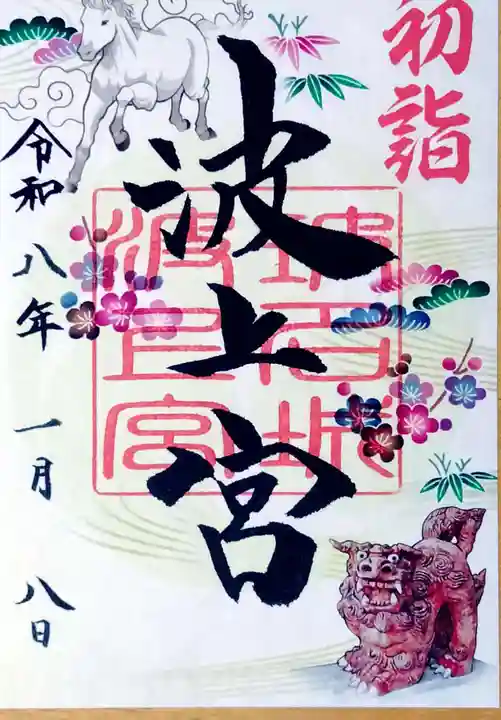 初詣
波上宮
令和八年 一月 八日